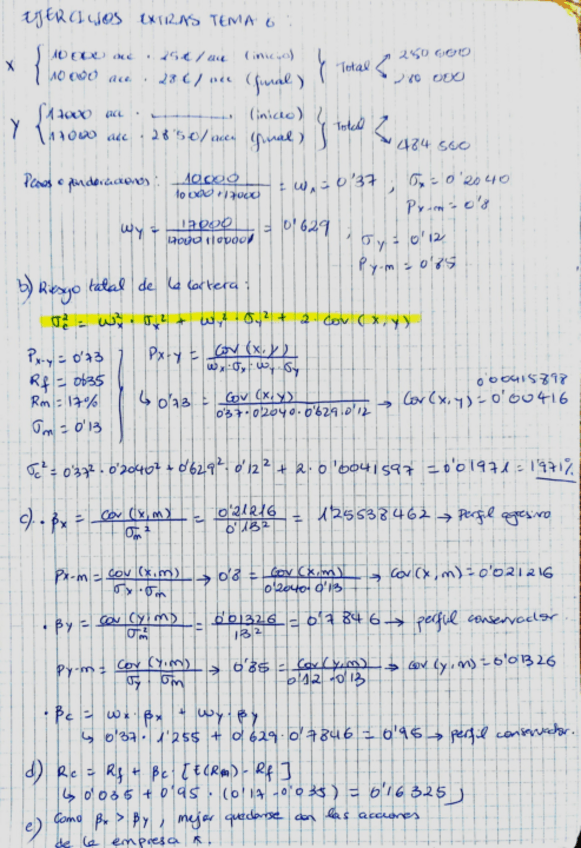 EJERCICIOS EXTRAS TEMA 6:
X { 10000 acc · 25€/acc (inicio) } Total < 250 000
10000 acc · 28€/acc (final) 280 000
Y { 17000 acc · ______ (inicio) } Total <
17000 acc · 28'50/acc (final) 484 500
Pesos o ponderaciones: 10000 / 10000+17000 = ωx = 0'37 , σx = 0'2040
Px-m = 0'8
ωy = 17000 / 17000+10000 = 0'629 ; σy = 0'12
Py-m = 0'85
b) Riesgo total de la cartera:
σc² = ωx² · σx² + ωy² · σy² + 2 · cov (x,y)
Px-y = 0'73
Rf = 0'035
Rm = 17%
σm = 0'13
Px-y = cov (x,y) / ωx·σx·ωy·σy
0'00415898
↳ 0'73 = cov (x,y) / 0'37·0'2040·0'629·0'12 → Cov(x,y) = 0'00416
σc² = 0'37² · 0'2040² + 0'629² · 0'12² + 2 · 0'0041597 = 0'01971 = 1'971%
c) · βx = cov (x,m) / σm² = 0'21216 / 0'13² = 1'25538462 → Perfil agresivo
Px-m = cov (x,m) / σx · σm → 0'8 = cov (x,m) / 0'2040 · 0'13 → Cov (x,m) = 0'021216
· βy = cov (y,m) / σm² = 0'01326 / 13² = 0'7846 → perfil conservador
Py-m = cov (y,m) / σy · σm → 0'85 = Cov (y,m) / 0'12 · 0'13 → cov (y,m) = 0'01326
· βc = ωx · βx + ωy · βy
↳ 0'37 · 1'255 + 0'629 · 0'7846 = 0'95 → perfil conservador.
d) Rc = Rf + βc · [E(Rm) - Rf]
↳ 0'035 + 0'95 · (0'17 - 0'035) = 0'16325
e) Como βx > βy , mejor quedarse con las acciones
de la empresa x.